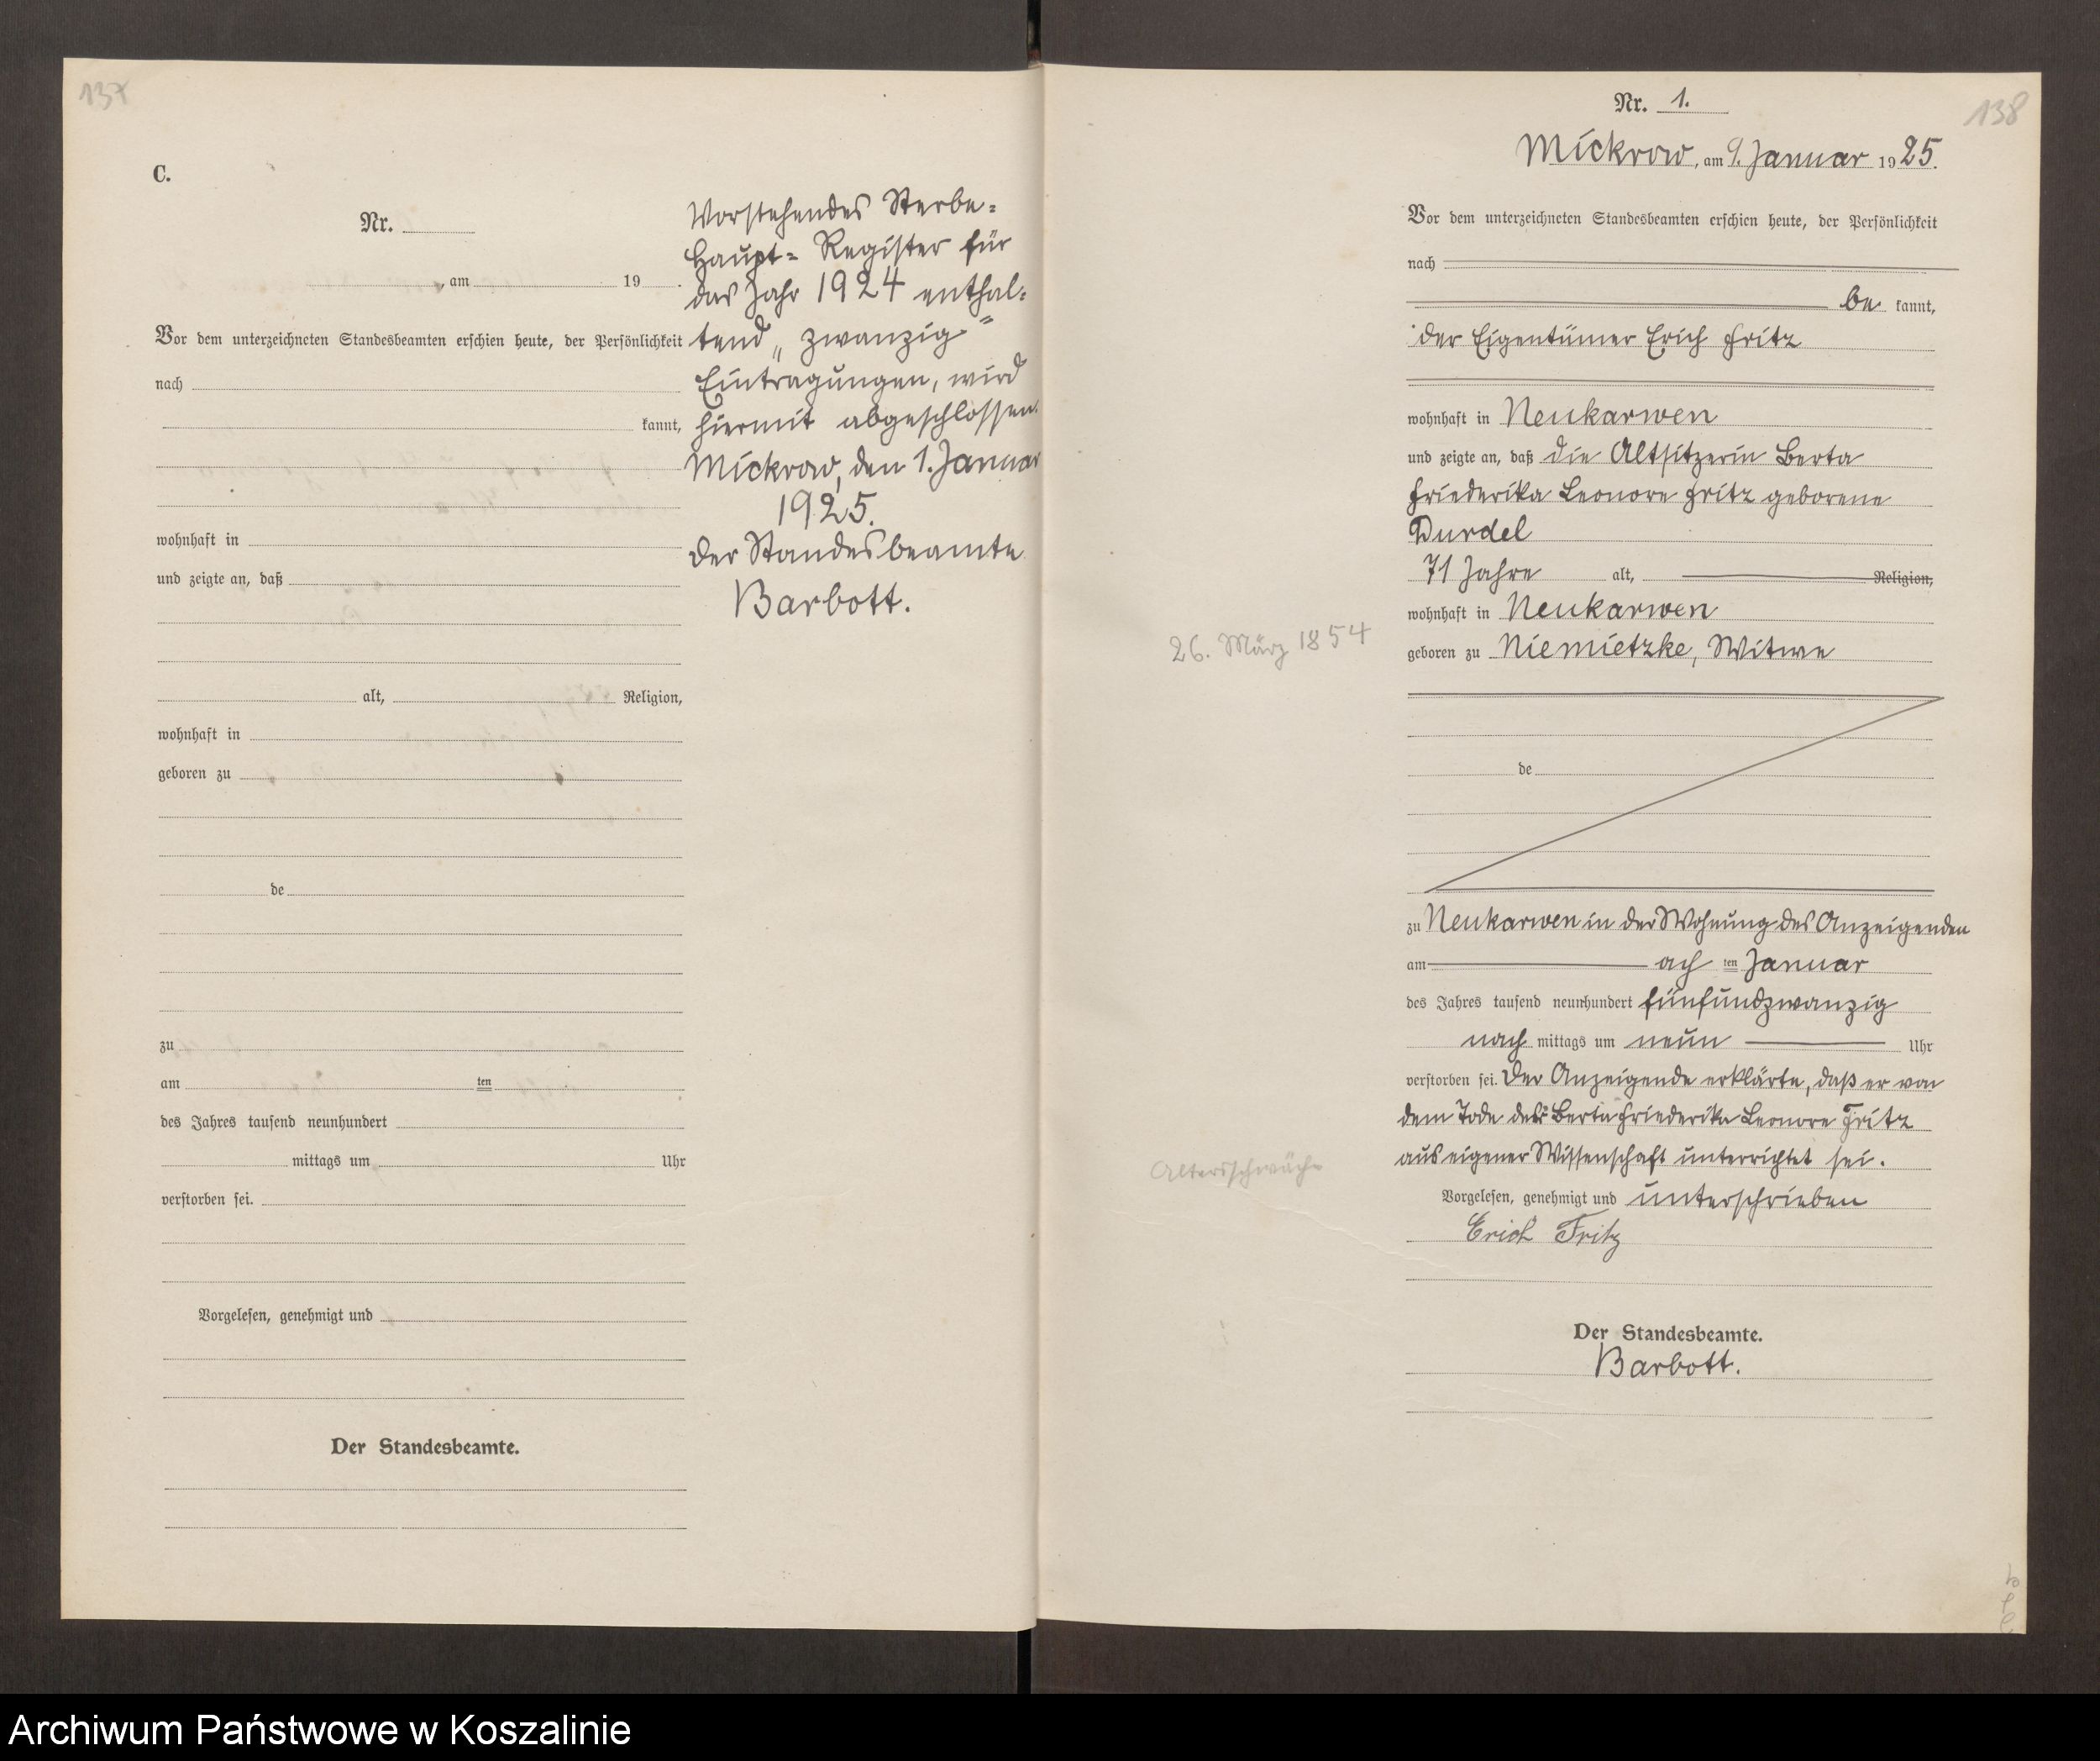 137
C.
Nr.
, am 19 .
Vor dem unterzeichneten Standesbeamten erschien heute, der Persönlichkeit
nach
kannt,
wohnhaft in
und zeigte an, daß
alt, Religion,
wohnhaft in
geboren zu
de
zu
am ten
des Jahres tausend neunhundert
mittags um Uhr
verstorben sei.
Vorgelesen, genehmigt und
Der Standesbeamte.
Vorstehendes Sterbe-
Haupt- Register für
das Jahr 1924 enthal-
tend „zwanzig“
Eintragungen, wird
hiermit abgeschlossen.
Mickrow, den 1. Januar
1925.
Der Standesbeamte
Barbott.
138
Nr. 1.
Mickrow, am 9. Januar 1925.
Vor dem unterzeichneten Standesbeamten erschien heute, der Persönlichkeit
nach
be kannt,
der Eigentümer Erich Fritz
wohnhaft in Neukarwen
und zeigte an, daß die Altsitzerin Berta
Friederika Leonore Fritz geborene
Durdel
71 Jahre alt, Religion,
wohnhaft in Neukarwen
26. März 1854
geboren zu Niemietzke, Witwe
de
zu Neukarwen in der Wohnung des Anzeigenden
am ach ten Januar
des Jahres tausend neunhundert fünfundzwanzig
nach mittags um neun Uhr
verstorben sei. Der Anzeigende erklärte, daß er von
dem Tode der Berta Friederika Leonore Fritz
aus eigener Wissenschaft unterrichtet sei.
Altersschwäche
Vorgelesen, genehmigt und unterschrieben
Erich Fritz
Der Standesbeamte.
Barbott.
Archiwum Państwowe w Koszalinie